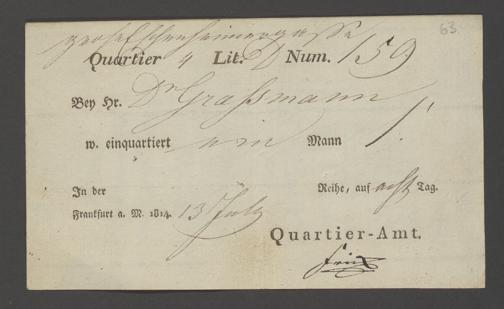 große Eschenheimergasse 63.
Quartier 4 Lit. D Num. 159
Bey Hr. Dr Grassmann
w. einquartiert ein Mann 1.
In der Reihe, auf acht Tag.
Frankfurt a. M. 1814. 13 July
Quartier-Amt.